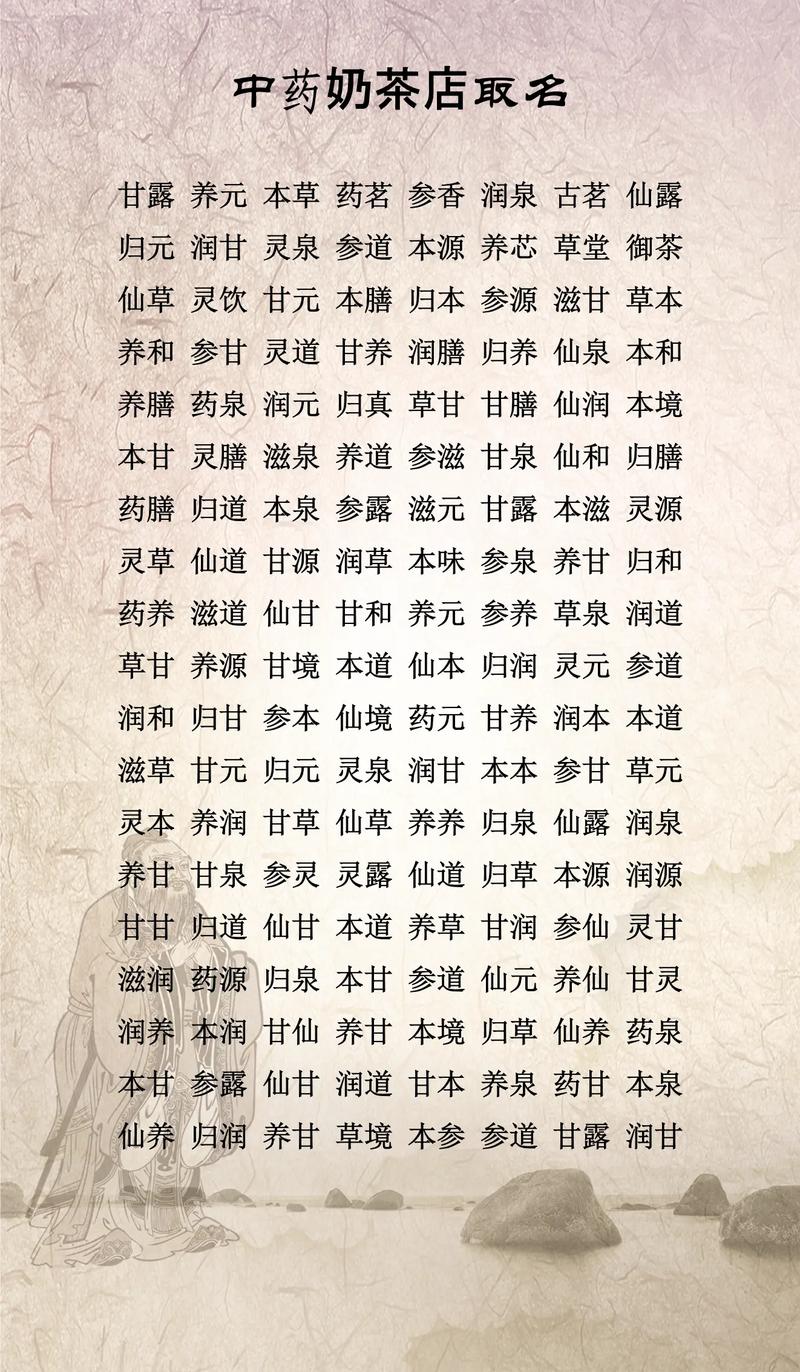 中药奶茶店取名
甘露 养元 本草 药茗 参香 润泉 古茗 仙露
归元 润甘 灵泉 参道 本源 养芯 草堂 御茶
仙草 灵饮 甘元 本膳 归本 参源 滋甘 草本
养和 参甘 灵道 甘养 润膳 归养 仙泉 本和
养膳 药泉 润元 归真 草甘 甘膳 仙润 本境
本甘 灵膳 滋泉 养道 参滋 甘泉 仙和 归膳
药膳 归道 本泉 参露 滋元 甘露 本滋 灵源
灵草 仙道 甘源 润草 本味 参泉 养甘 归和
药养 滋道 仙甘 甘和 养元 参养 草泉 润道
草甘 养源 甘境 本道 仙本 归润 灵元 参道
润和 归甘 参本 仙境 药元 甘养 润本 本道
滋草 甘元 归元 灵泉 润甘 本本 参甘 草元
灵本 养润 甘草 仙草 养养 归泉 仙露 润泉
养甘 甘泉 参灵 灵露 仙道 归草 本源 润源
甘甘 归道 仙甘 本道 养草 甘润 参仙 灵甘
滋润 药源 归泉 本甘 参道 仙元 养仙 甘灵
润养 本润 甘仙 养甘 本境 归草 仙养 药泉
本甘 参露 仙甘 润道 甘本 养泉 药甘 本泉
仙养 归润 养甘 草境 本参 参道 甘露 润甘